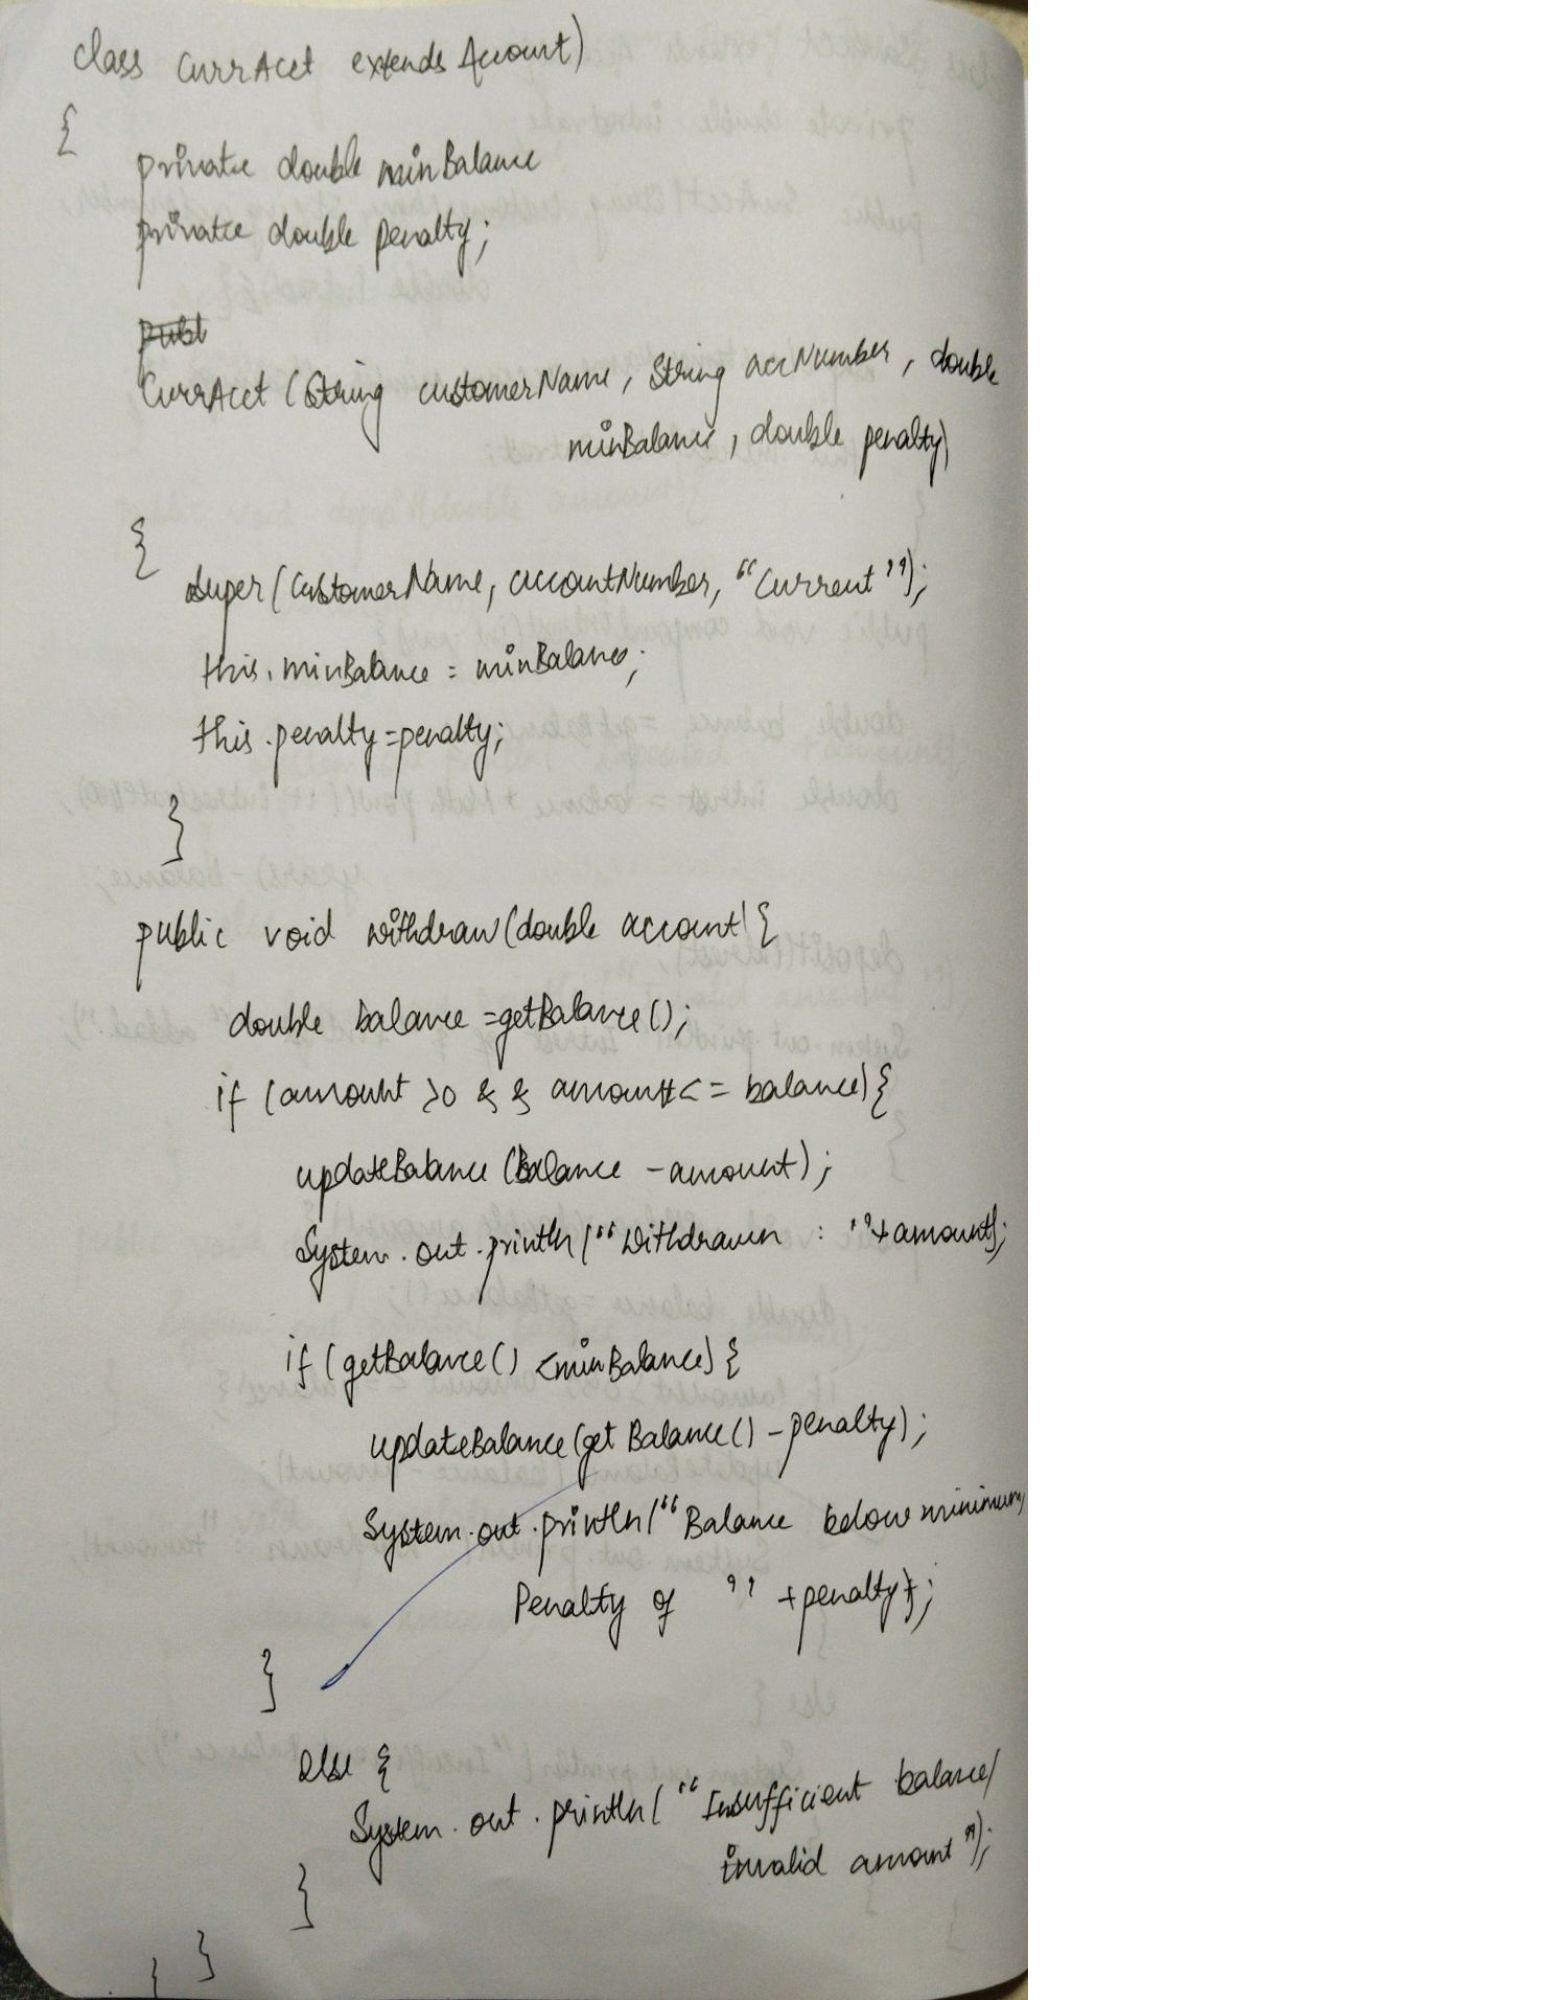 class CurrAcct extends Account)
{
private double minBalance
private double penalty;
CurrAcct (String customerName, String accNumber, double
minBalance, double penalty)
{
super(customerName, accountNumber, "Current");
this.minBalance = minBalance;
this.penalty=penalty;
}
public void withdraw(double account) {
double balance =getBalance();
if (amount >0 && amount<= balance) {
updateBalance (balance -amount);
System.out.println("Withdrawn : "+amount);
if (getBalance() <minBalance) {
updateBalance(getBalance() -penalty);
System.out.println("Balance below minimum,
Penalty of " +penalty);
}
else {
System.out.println("Insufficient balance/
invalid amount");
}
}
}